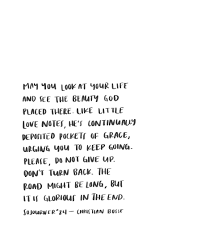 MAY YOU LOOK AT YOUR LIFE
AND SEE THE BEAUTY GOD
PLACED THERE. LIKE LITTLE
LOVE NOTES, HE'S CONTINUALLY
DEPOSITED POCKETS OF GRACE,
URGING YOU TO KEEP GOING.
PLEASE, DO NOT GIVE UP.
DON'T TURN BACK. THE
ROAD MIGHT BE LONG, BUT
IT IS GLORIOUS IN THE END.
SOJOURNER '24 — CHRISTIAN